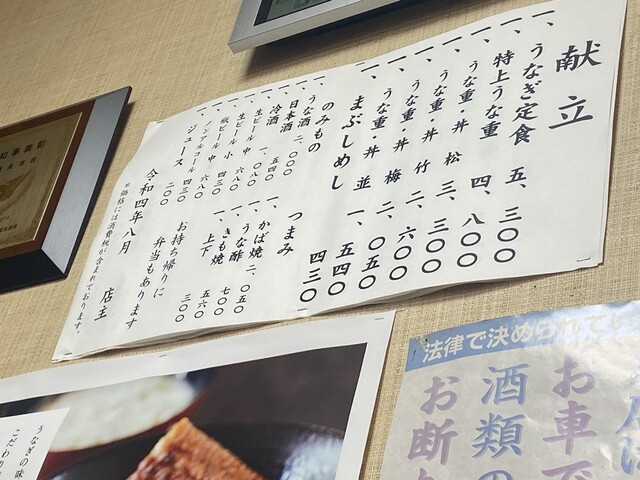 献立
一、うなぎ定食 五、三〇〇
一、特上うな重 四、八〇〇
一、うな重・丼 松 三、三〇〇
一、うな重・丼 竹 二、六〇〇
一、うな重・丼 梅 二、〇五〇
一、うな重・丼 並 一、五四〇
一、まぶしめし 四三〇
のみもの
うな酒
日本酒
冷酒
生ビール 中
生ビール 小
瓶ビール 中
ノンアルコール 四三〇
ジュース 二〇〇
つまみ
一、かば焼 二、〇五〇
一、うな酢 七〇〇
一、きも焼 五六〇
上下 三〇〇
お持ち帰りに
弁当もあります
令和四年八月 店主
＊価格には消費税が含まれております。
知事表彰
うなぎの味
こだわり
法律で決められてい
お車で
酒類の
お断り